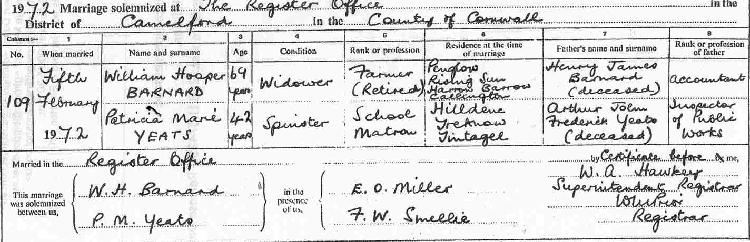 1972 Marriage solemnized at The Register Office in the
District of Camelford in the County of Cornwall
Columns:— 1 2 3 4 5 6 7 8
No. When married Name and surname Age Condition Rank or profession Residence at the time of marriage Father's name and surname Rank or profession of father
109 Fifth February 1972
William Hooper BARNARD 69 years Widower Farmer (Retired) Penglow Rising Sun Harrow Barrow Callington Henry James Barnard (deceased) Accountant
Patricia Marie YEATS 42 years Spinster School Matron Hilldene Treknow Tintagel Arthur John Frederick Yeats (deceased) Inspector of Public Works
Married in the Register Office by Certificate before me,
This marriage was solemnized between us,
W. H. Barnard
P. M. Yeats
in the presence of us,
E. O. Miller
F. W. Smellie
W. A. Hawkey
Superintendent Registrar
Registrar